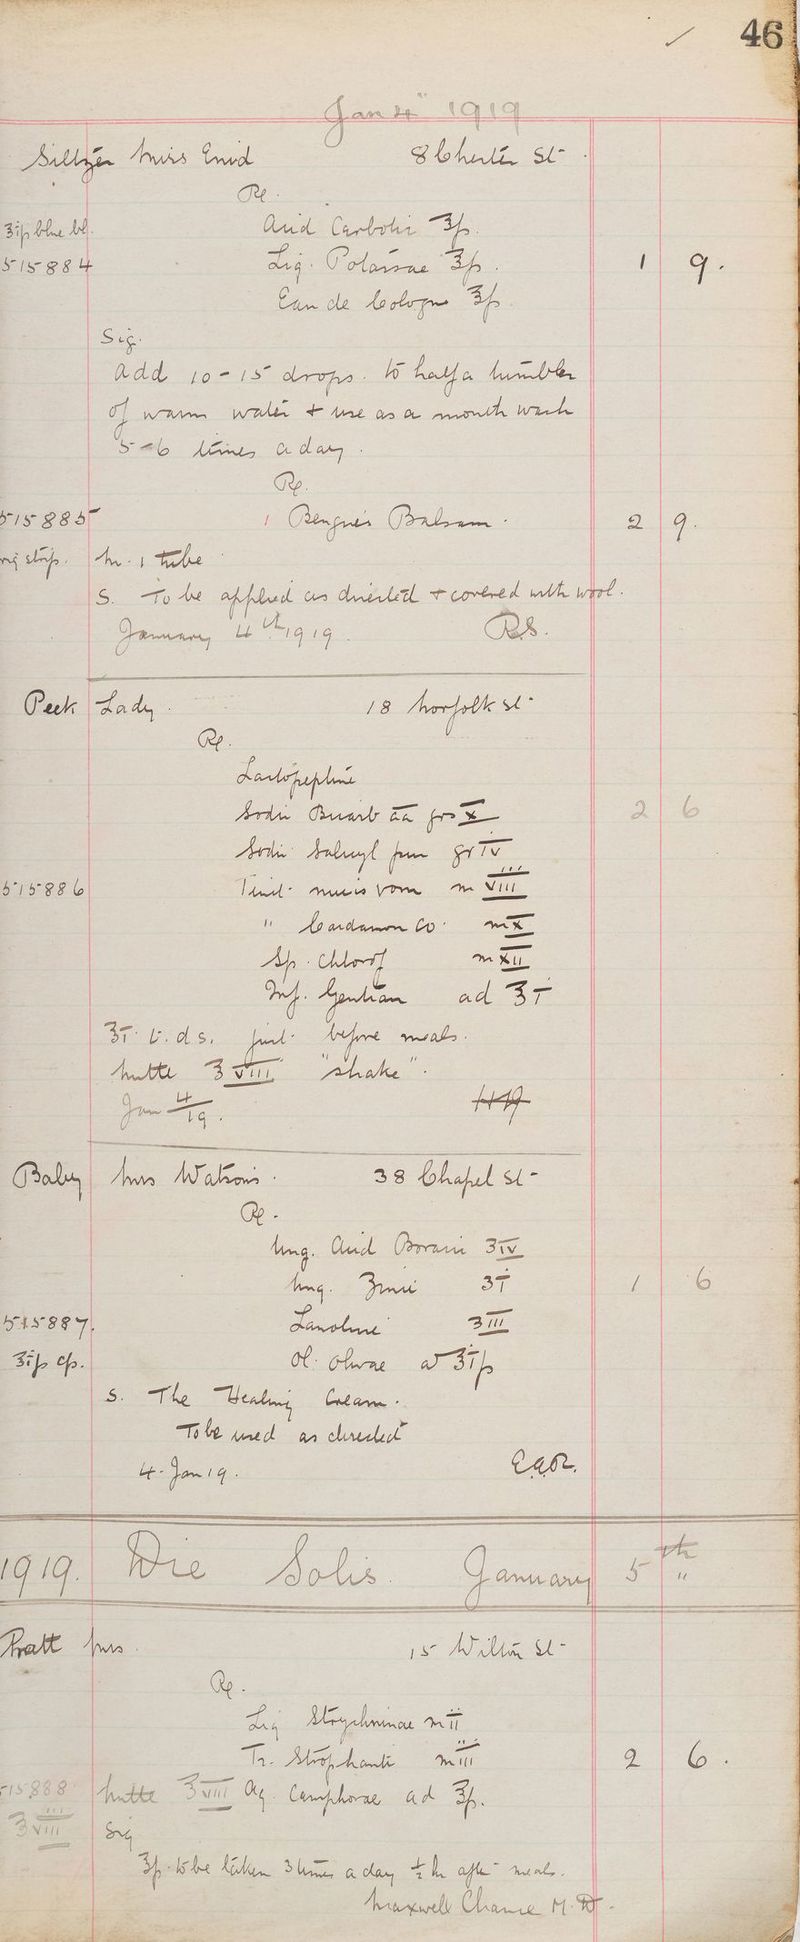 46
Jan 4" 1919
Siltzer Miss Enid 8 Chester St
Rx.
ʒip blue bl. Acid Carbolic ʒſs.
515884 Liq. Potassae ʒſs. 1 9.
Eau de Cologne ʒſs
Sig.
Add 10-15 drops to half a tumbler
of warm water + use as a mouth wash
5-6 times a day.
Rx.
515885 1 Bengue's Balsam. 2 9.
m. 1 tube
S. To be applied as directed + covered with wool.
January 4th 1919. R.S.
Peek Lady. 18 Norfolk St
Rx.
Lactopeptine
Sodii Bicarb āā grs x 2 6
Sodii Salicyl grIV
515886 Tinct. nucis vom m VIII
" Cardamom Co. m X
Sp. Chlorof m XII
Inf. Gentian ad ℥ī
℥ī t.d.s. just before meals.
Mitte ℥VIII "shake".
Jan 4/19.
Baby Mrs Watson's. 38 Chapel St
Rx.
Ung. Acid Boracic ʒIV
Ung. Zinci ʒī 1 6
515887. Lanoline ʒIII
Ol. Olivae ad
S. The Healing Cream.
To be used as directed
4. Jan 19.
1919. Die Solis. January 5th "
Pratt Mrs. 15 Wilton St
Rx.
Liq Strychninae m ii
Tr. Strophanti m iii 2 6.
515888 Mitte ℥VIII Aq. Camphorae ad ℥ſs.
℥VIII Sig
℥ſs. to be taken 3 times a day ½ hr after meals.
Maxwell Chance M.D.